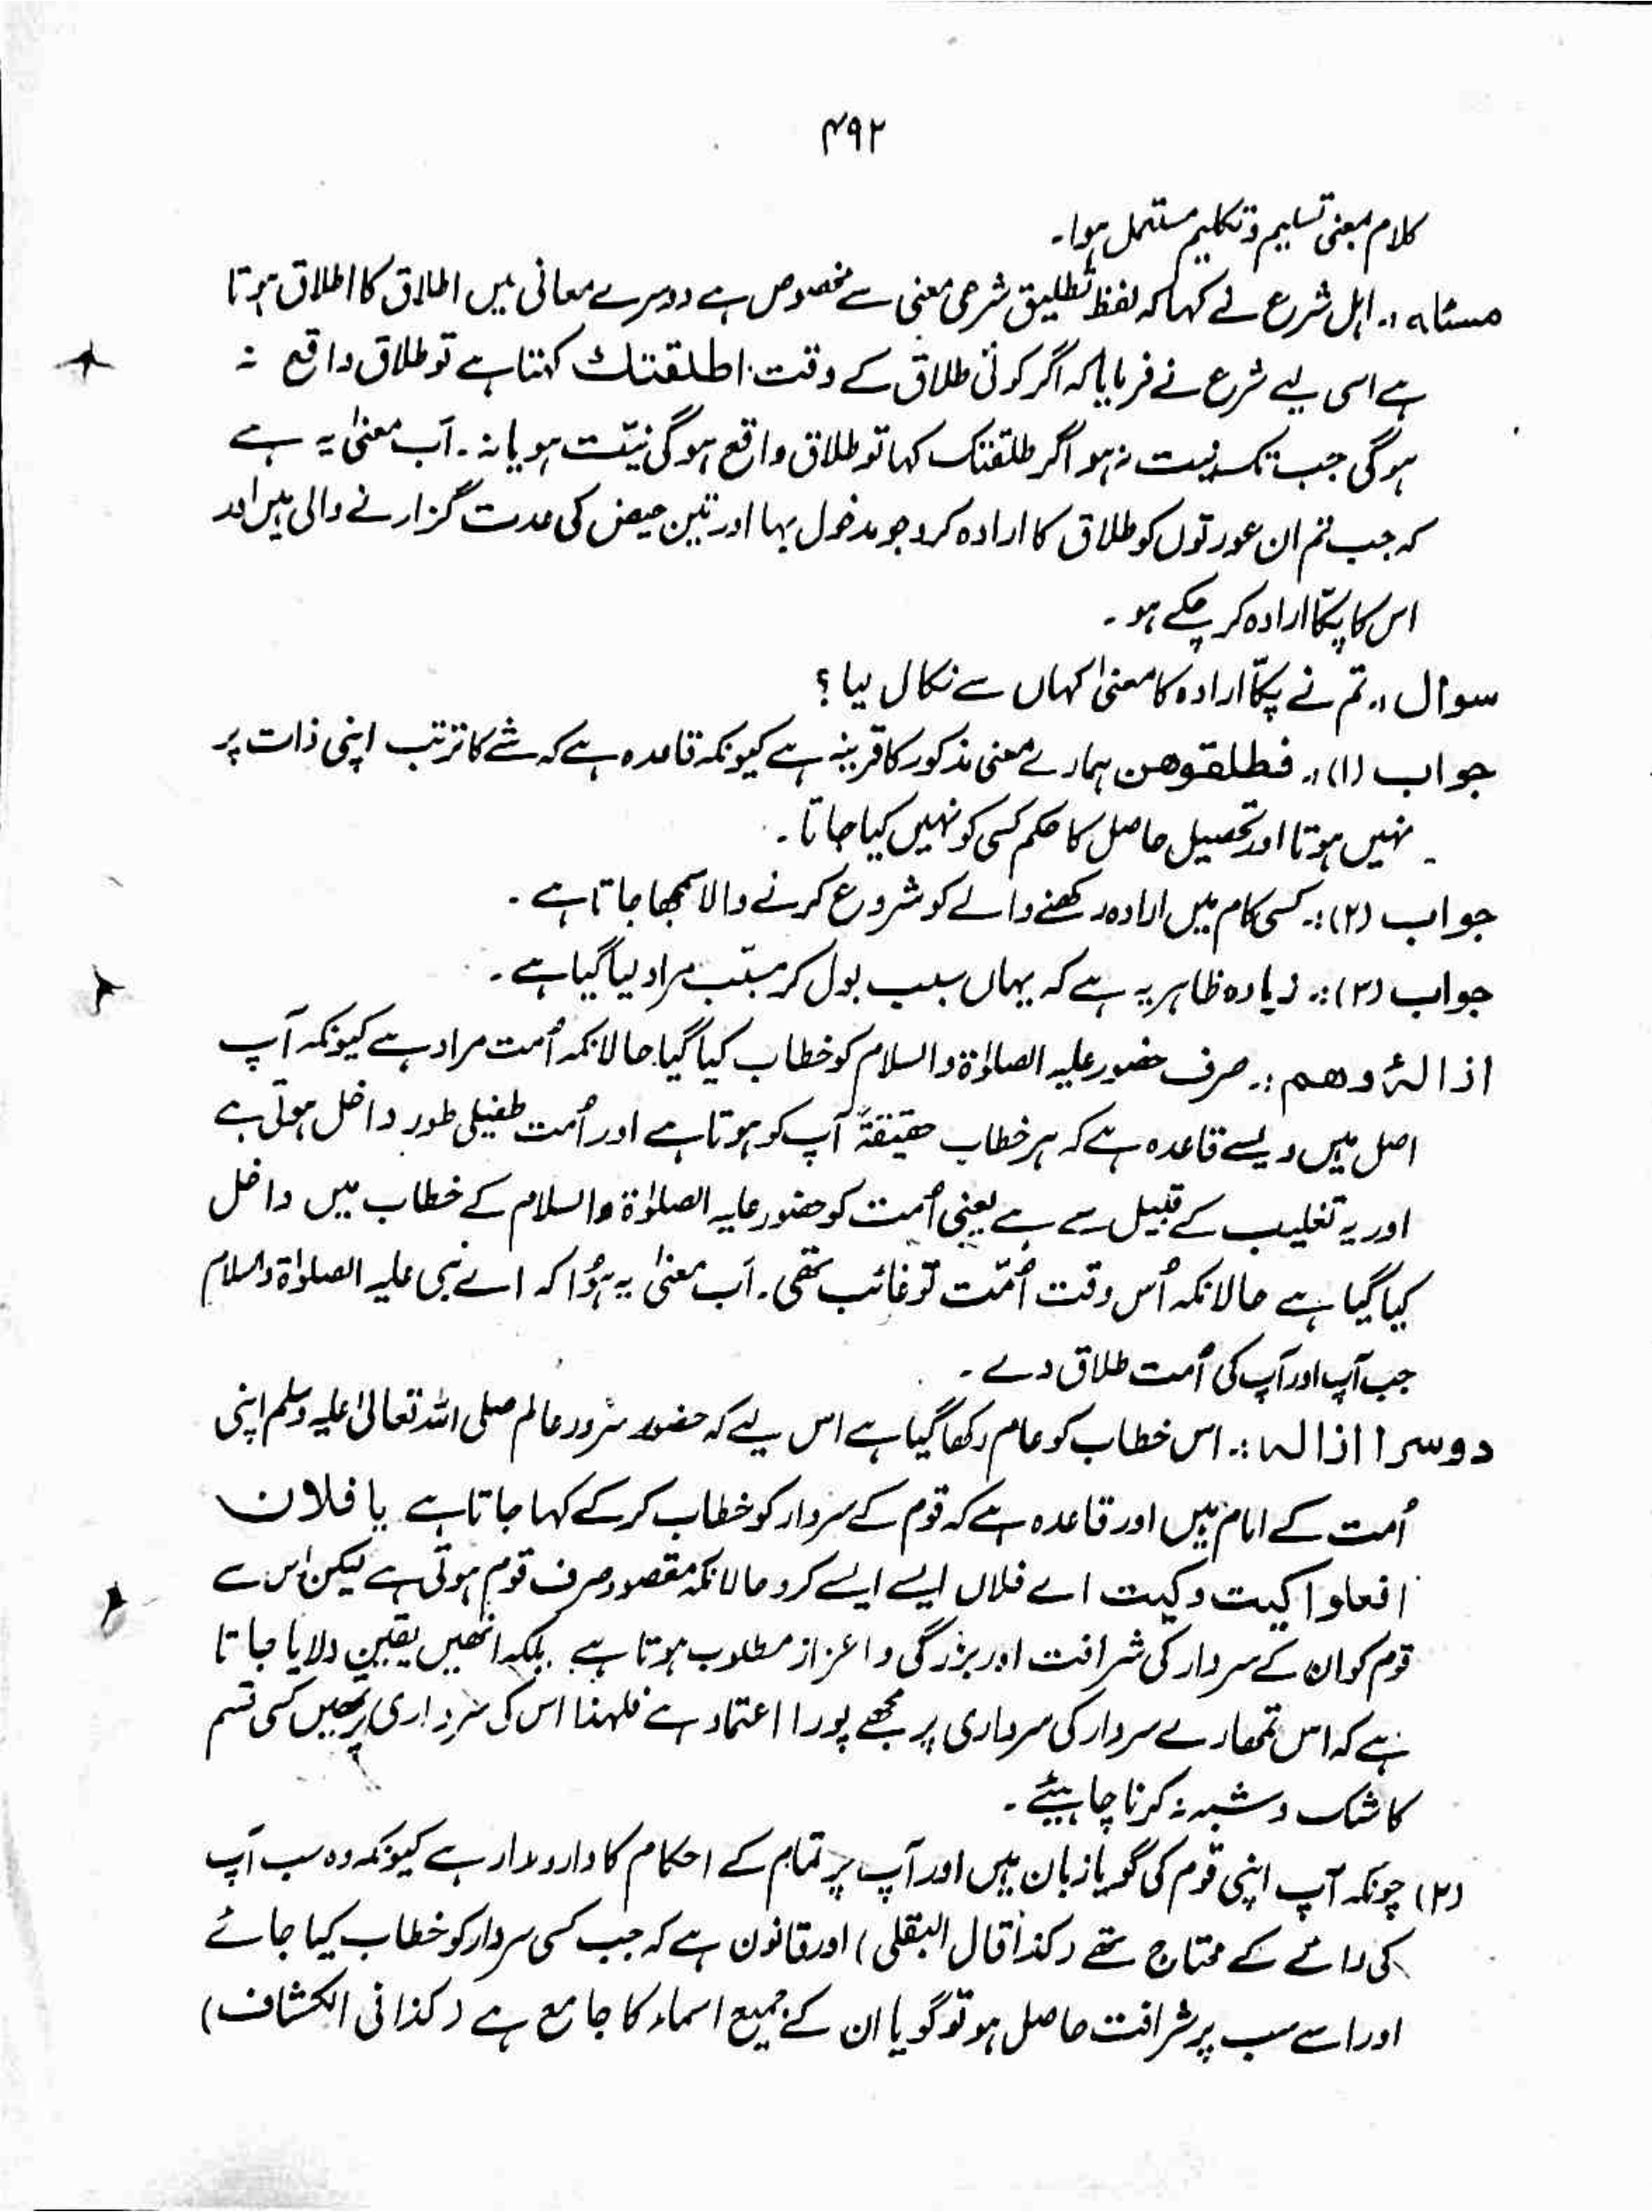 ۴۹۲
کلام بمعنی تسلیم و تکلیم مستعمل ہوا۔
مسئلہ :۔ اہل شرع نے کہا کہ لفظ تطلیق شرعی معنی سے مخصوص ہے دوسرے معانی میں اطلاق کا اطلاق ہوتا
ہے اسی لیے شرع نے فرمایا کہ اگر کوئی طلاق کے وقت اطلقتك کہتا ہے تو طلاق واقع نہ
ہوگی جب تک نیت نہ ہو اگر طلقتک کہا تو طلاق واقع ہوگی نیّت ہو یا نہ۔ اَب معنیٰ یہ ہے
کہ جب تم ان عورتوں کو طلاق کا ارادہ کرو جو مدخول بہا اور تین حیض کی عدت گزارنے والی ہیں اور
اس کا پکّا ارادہ کر چکے ہو۔
سوال :۔ تم نے پکّا ارادہ کا معنیٰ کہاں سے نکال لیا؟
جواب (۱) :۔ فطلقوهن ہمارے معنی مذکور کا قرینہ ہے کیونکہ قاعدہ ہے کہ شے کا ترتب اپنی ذات پر
نہیں ہوتا اور تحصیل حاصل کا حکم کسی کو نہیں کیا جاتا۔
جواب (۲) :۔ کسی کام میں ارادہ رکھنے والے کو شروع کرنے والا سمجھا جاتا ہے۔
جواب (۳) :۔ زیادہ ظاہر یہ ہے کہ یہاں سبب بول کر مسبّب مراد لیا گیا ہے۔
ازالۂ وھم :۔ صرف حضور علیہ الصلوٰۃ والسلام کو خطاب کیا گیا حالانکہ اُمت مراد ہے کیونکہ آپ
اصل ہیں ویسے قاعدہ ہے کہ ہر خطاب حقیقۃً آپ کو ہوتا ہے اور اُمت طفیلی طور داخل ہوتی ہے
اور یہ تغلیب کے قبیل سے ہے یعنی اُمت کو حضور علیہ الصلوٰۃ والسلام کے خطاب میں داخل
کیا گیا ہے حالانکہ اُس وقت اُمّت تو غائب تھی۔ اَب معنیٰ یہ ہُوا کہ اے نبی علیہ الصلوٰۃ والسلام
جب آپ اور آپ کی اُمت طلاق دے۔
دوسرا ازالہ :۔ اس خطاب کو عام رکھا گیا ہے اس لیے کہ حضور سرور عالم صلی اللہ تعالیٰ علیہ وسلم اپنی
اُمت کے امام ہیں اور قاعدہ ہے کہ قوم کے سردار کو خطاب کرکے کہا جاتا ہے یا فلان
افعلوا کیت وکیت اے فلاں ایسے ایسے کرو حالانکہ مقصود صرف قوم ہوتی ہے لیکن اس سے
قوم کو ان کے سردار کی شرافت اور بزرگی و اعزاز مطلوب ہوتا ہے بلکہ انھیں یقین دلایا جاتا
ہے کہ اس تمھارے سردار کی سرداری پر مجھے پورا اعتماد ہے فلہٰذا اس کی سرداری پر تمھیں کسی قسم
کا شک و شبہ نہ کرنا چاہیئے۔
(۲) چونکہ آپ اپنی قوم کی گویا زبان ہیں اور آپ پر تمام کے احکام کا دارومدار ہے کیونکہ وہ سب آپ
کی رائے کے محتاج تھے (کذا قال البقلی) اور قانون ہے کہ جب کسی سردار کو خطاب کیا جائے
اور اسے سب پر شرافت حاصل ہو تو گویا ان کے جمیع اسماء کا جامع ہے (کذا فی الکشاف)